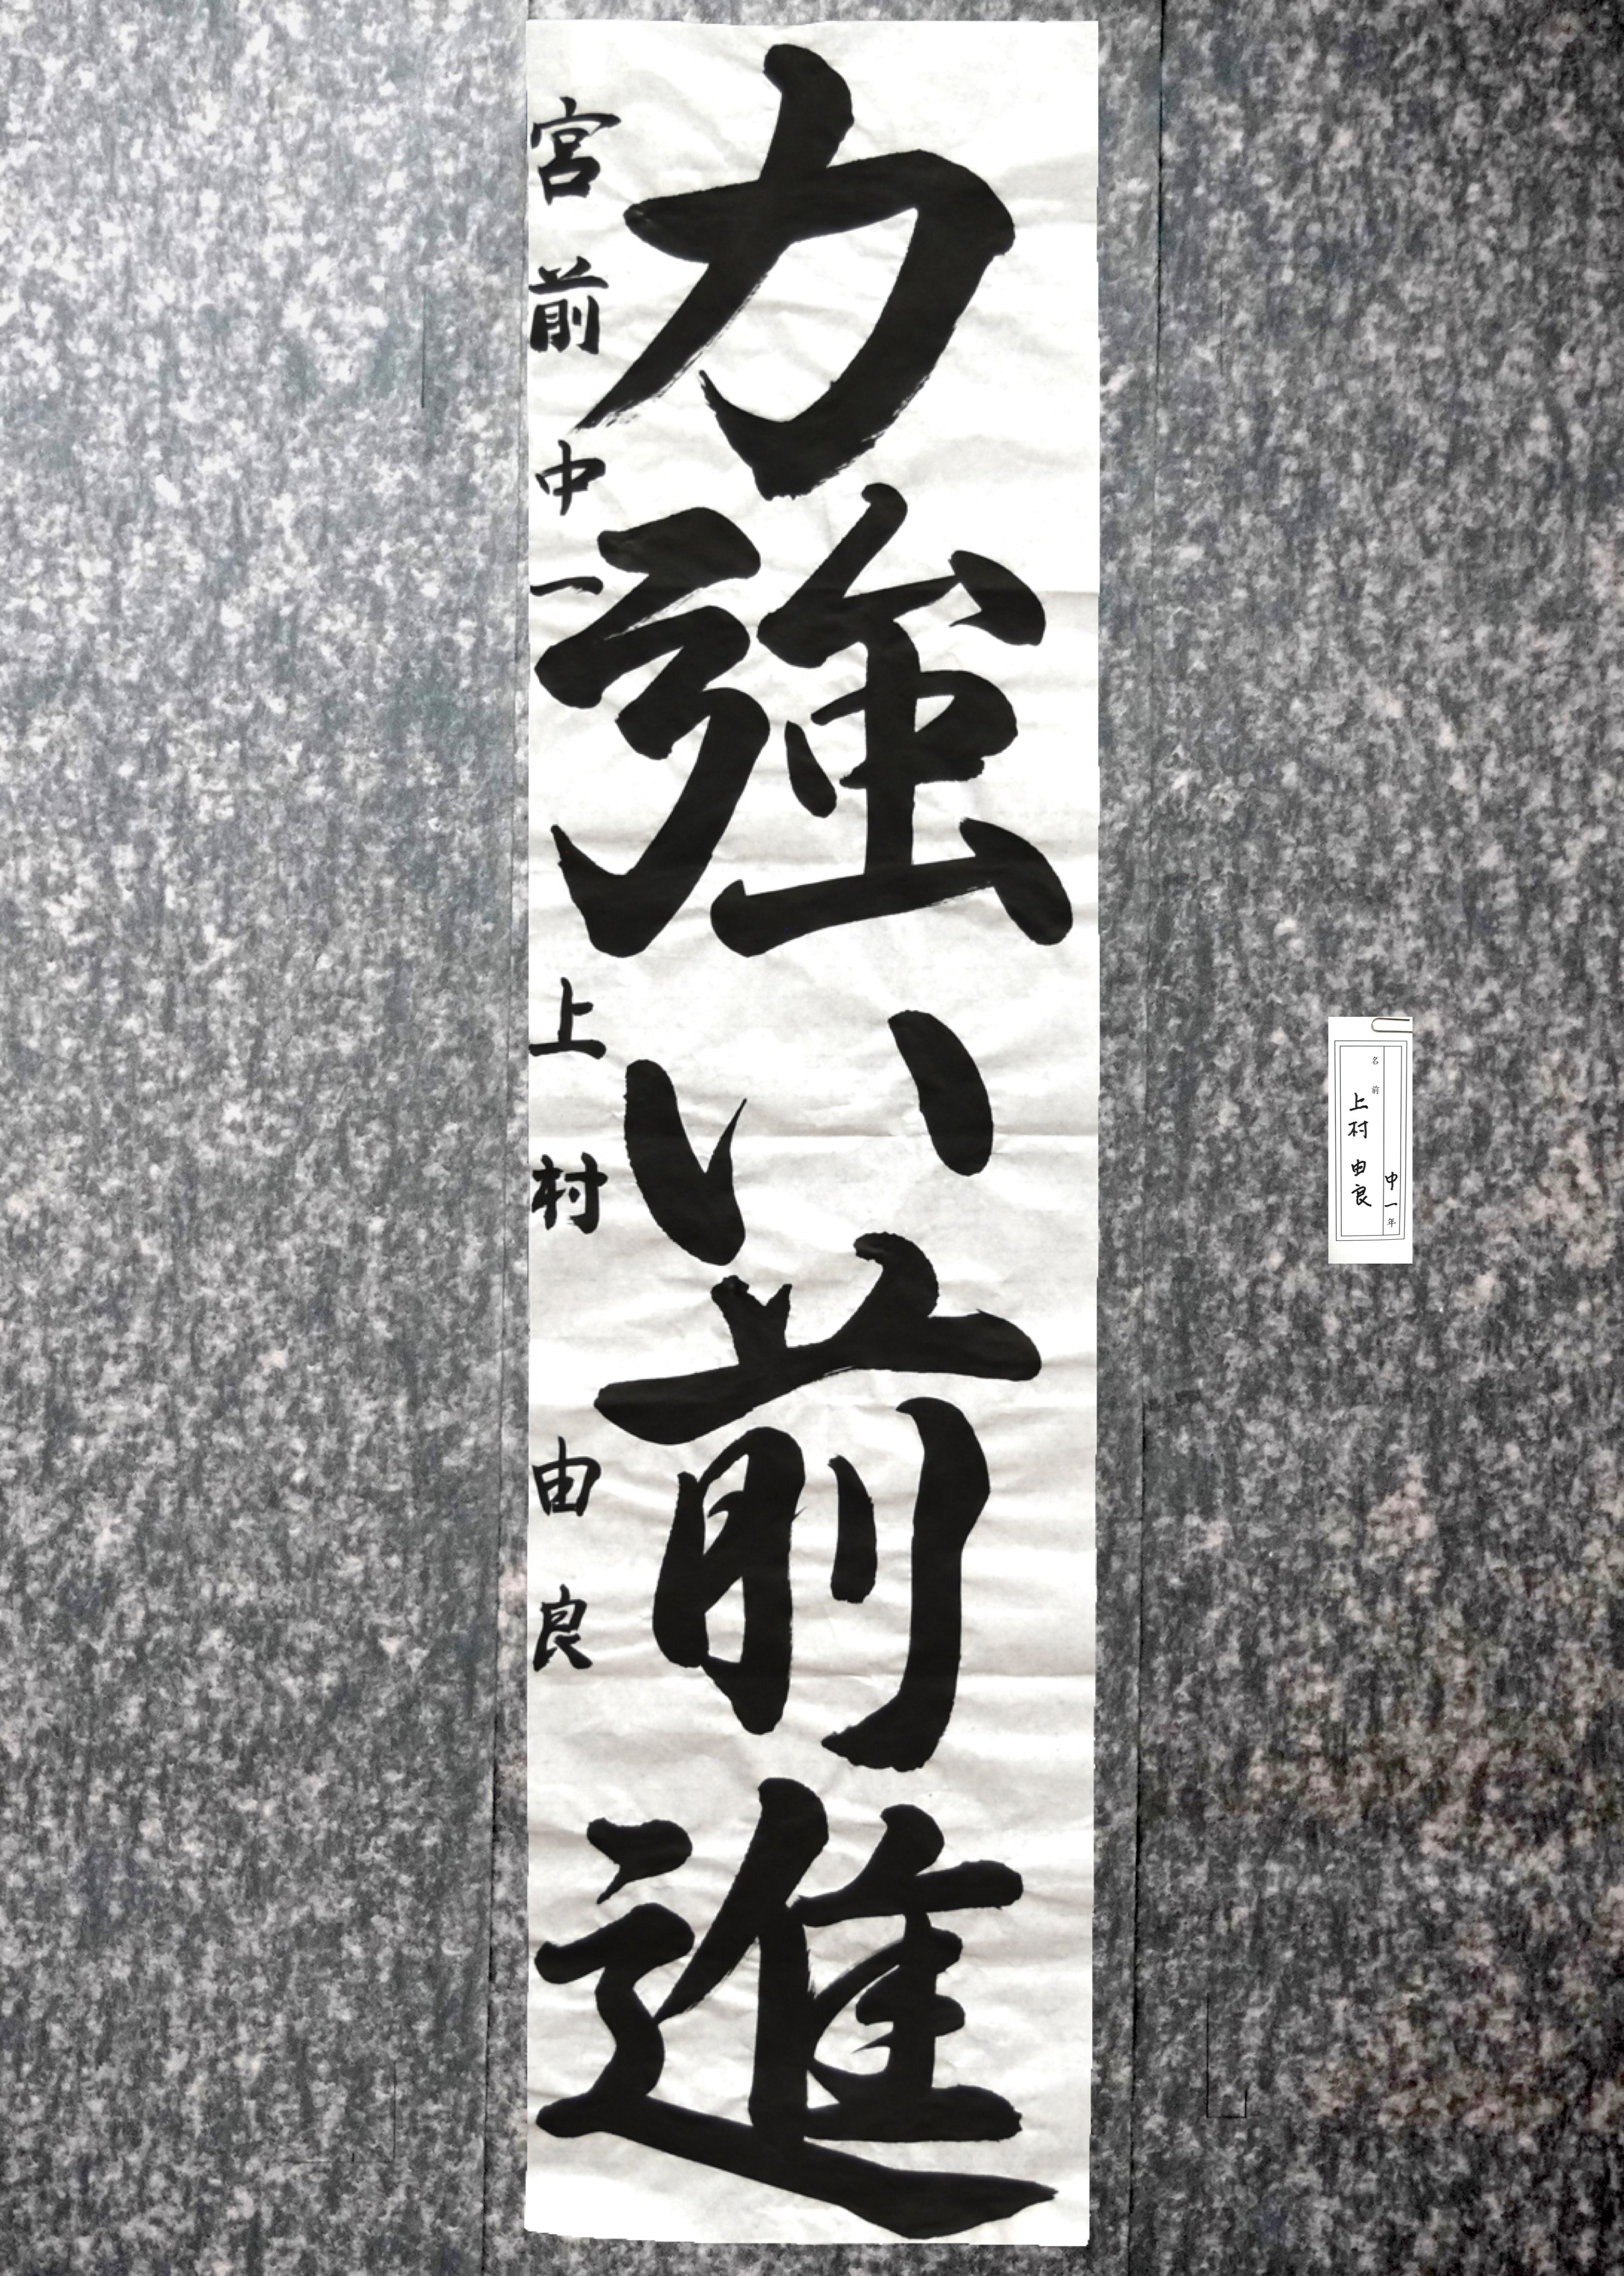 力強い前進
宮前中一 上村 由良
中一年
名前
上村 由良